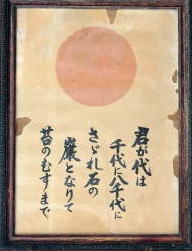 君が代は
千代に八千代に
さゞれ石の
巌となりて
苔のむすまで